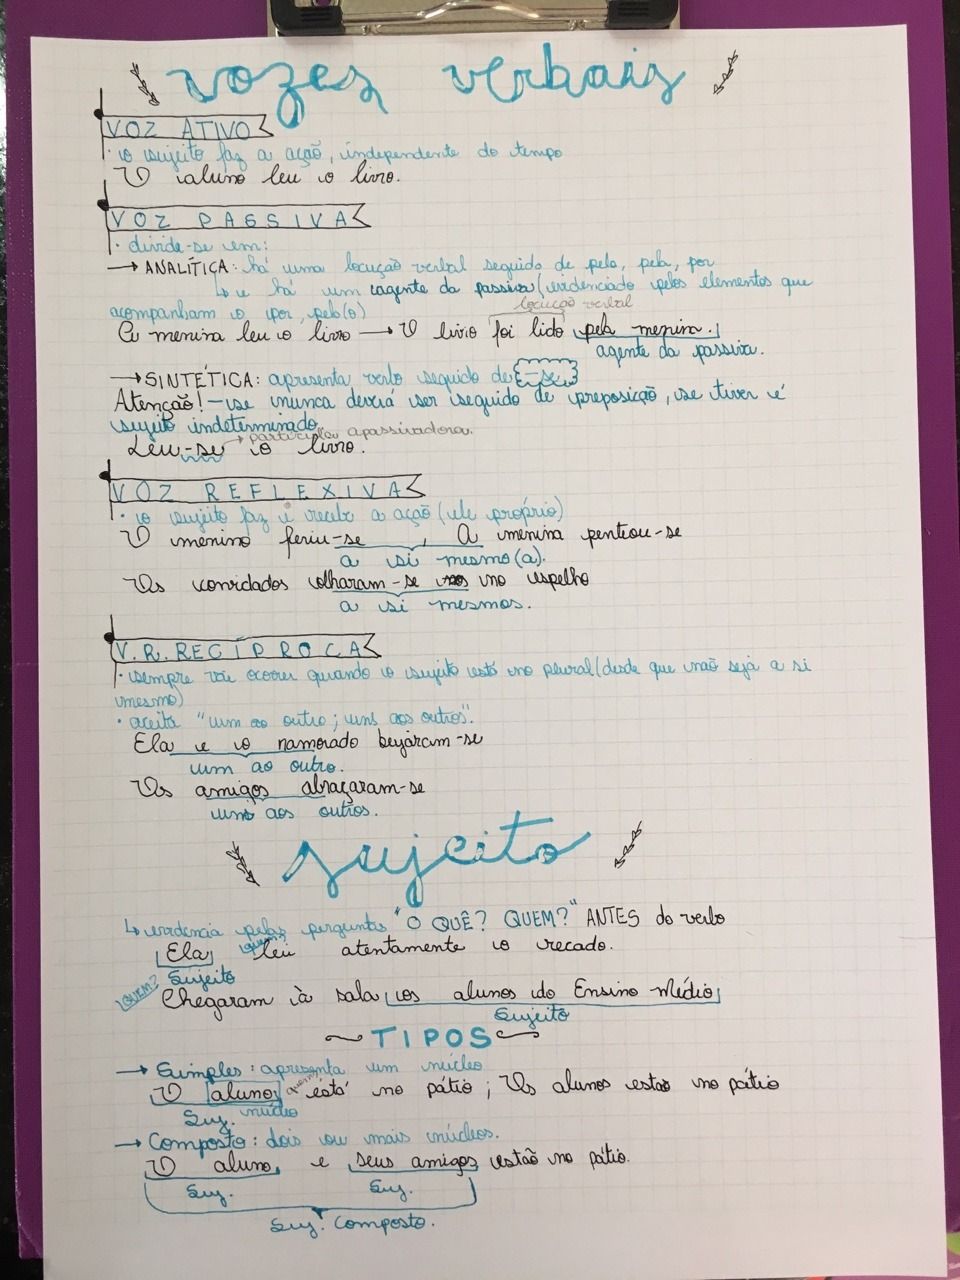 vozes verbais
VOZ ATIVO
• o sujeito faz a ação, independente do tempo
O aluno leu o livro.
VOZ PASSIVA
• divide-se em:
→ ANALÍTICA: há uma locução verbal seguido de pelo, pela, por
↳ e há um agente da passiva (evidenciado pelos elementos que
acompanham o por, pelo(a)
locução verbal
A menina leu o livro → O livro foi lido pela menina.
agente da passiva.
→ SINTÉTICA: apresenta verbo seguido de -se
Atenção! -se nunca deverá ser seguido de preposição, se tiver é
sujeito indeterminado
→ partícula apassivadora.
Leu-se o livro.
VOZ REFLEXIVA
• o sujeito faz e recebe a ação (ele próprio)
O menino feriu-se , A menina penteou-se
a si mesmo(a).
Os convidados olharam-se no espelho
a si mesmos.
V.R. RECÍPROCA
• sempre vai ocorrer quando o sujeito está no plural (desde que não seja a si
mesmo)
• aceita "um ao outro; uns aos outros".
Ela e o namorado beijaram-se
um ao outro.
Os amigos abraçaram-se
uns aos outros.
sujeito
↳ evidencia pelas perguntas "O QUÊ? QUEM?" ANTES do verbo
Ela leu atentamente o recado.
Sujeito
QUEM?
Chegaram à sala os alunos do Ensino Médio
Sujeito
TIPOS
→ Simples: apresenta um núcleo
O aluno está no pátio; Os alunos estão no pátio
Suj. núcleo
→ Composto: dois ou mais núcleos.
O aluno e seus amigos estão no pátio.
Suj. Suj.
Suj. Composto.